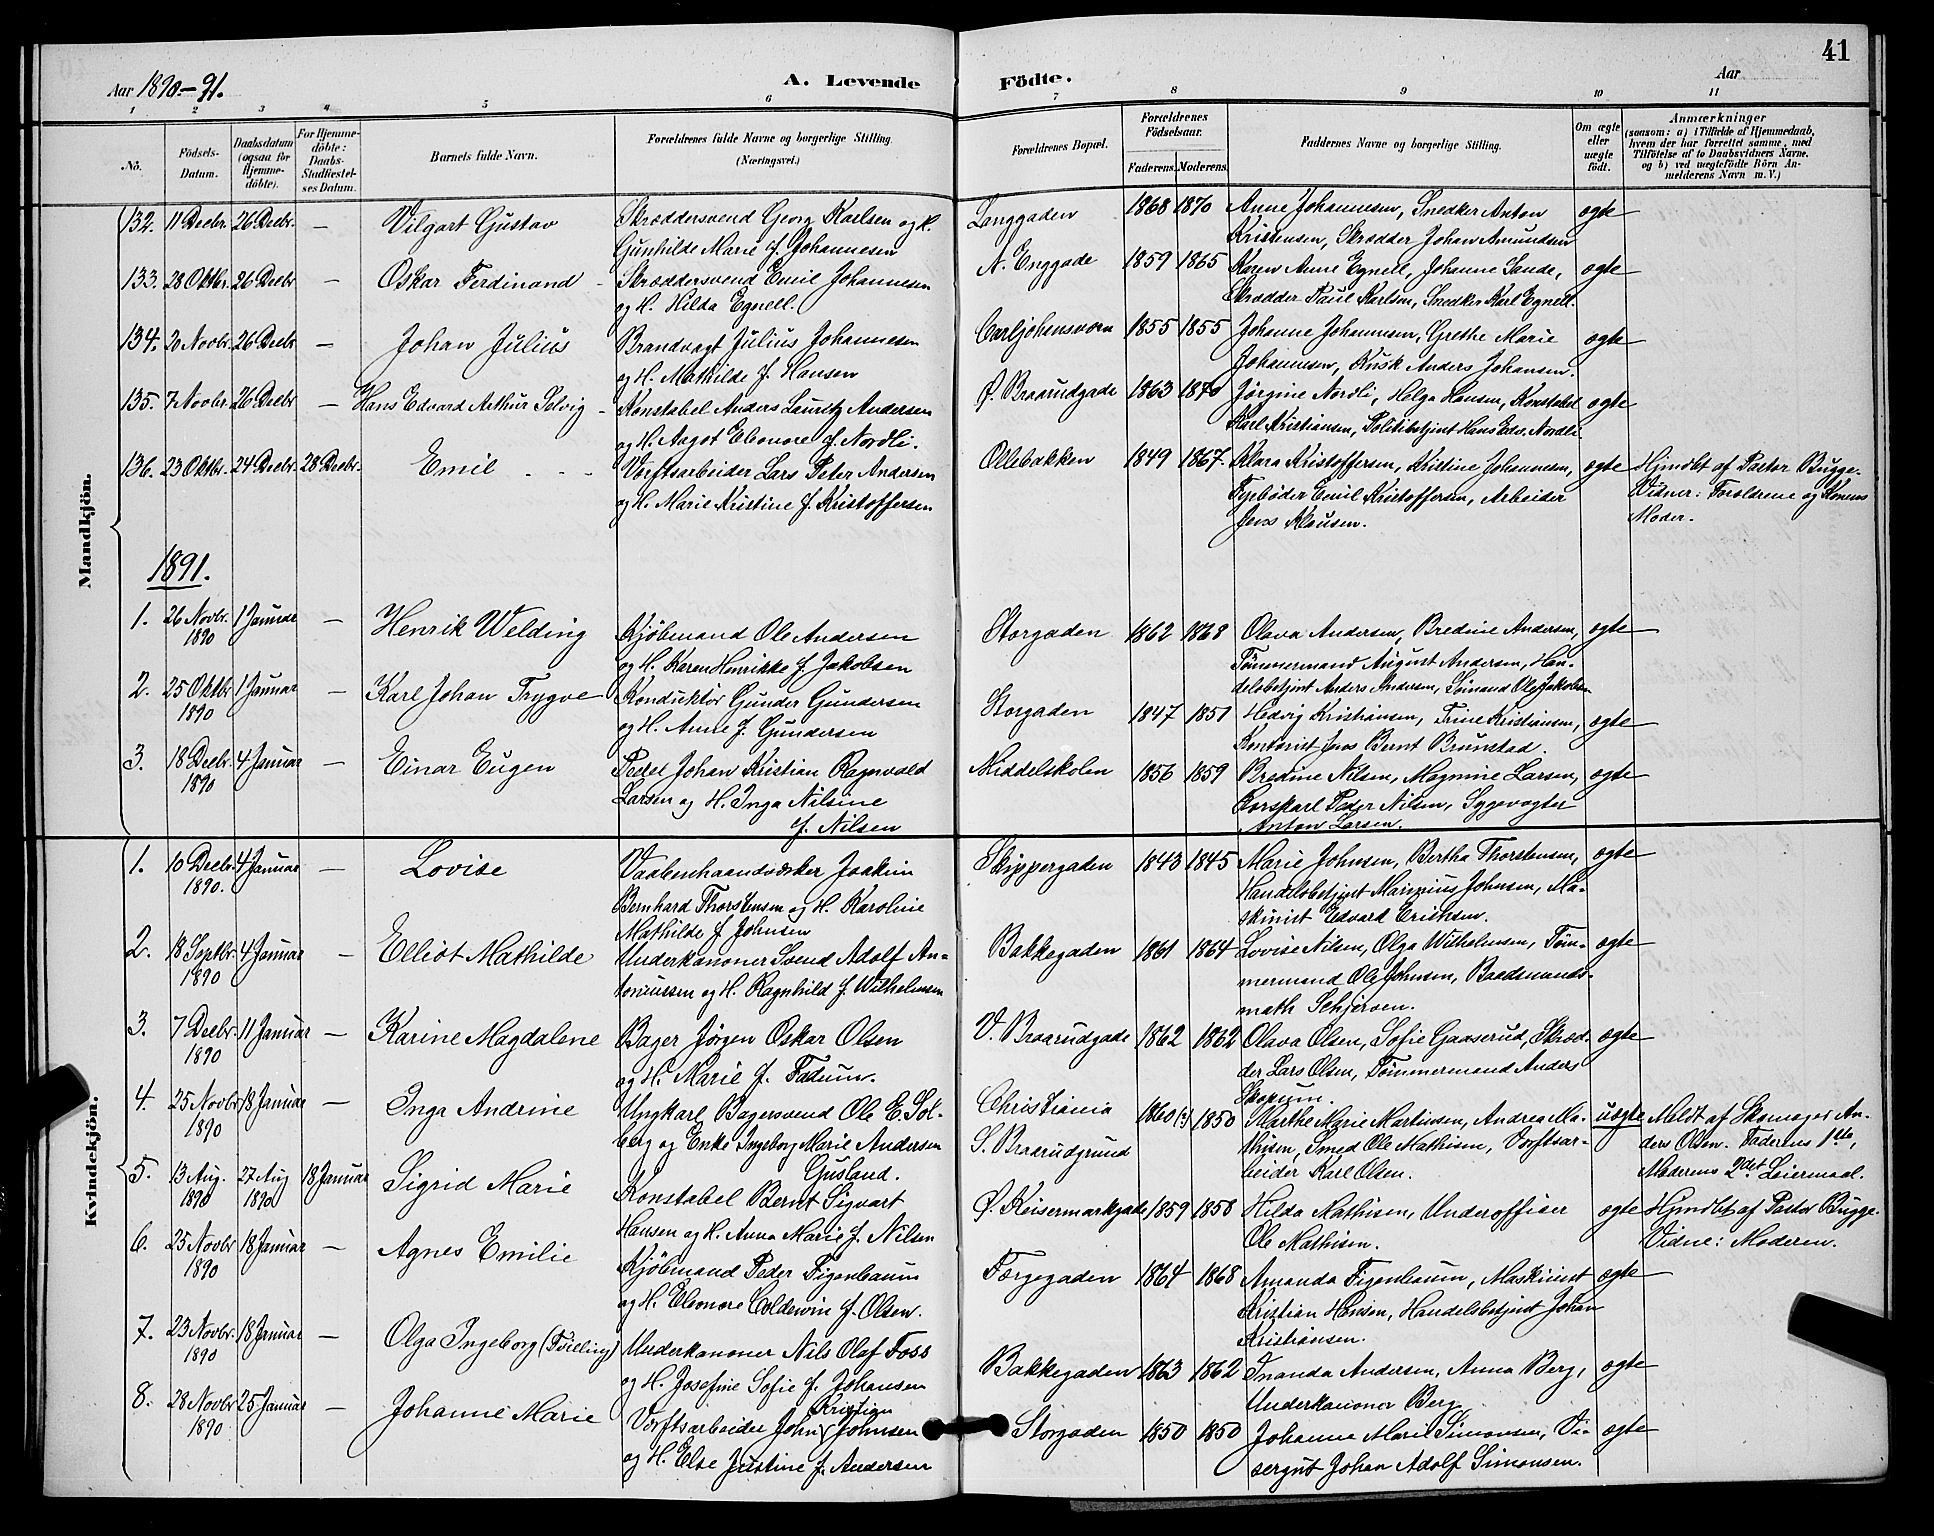 41
Aar 1890.-91.
A. Levende Födte.
Aar
1 2 3 4 5 6 7 8 9 10 11
No.
Födsels-
Datum.
Daabsdatum
(ogsaa for
Hjemme-
döbte).
For Hjemme-
döbte:
Daabs-
Stadfæstel-
ses Datum.
Barnets fulde Navn.
Forældrenes fulde Navne og borgerlige Stilling.
(Næringsvei.)
Forældrenes Bopæl.
Forældrenes
Födselsaar.
Faderens. Moderens.
Faddernes Navne og borgerlige Stilling.
Om ægte
eller
uægte
födt.
Anmærkninger
(saasom: a) i Tilfælde af Hjemmedaab,
hvem der har forrettet samme, med
Tilföielse af to Daabsvidners Navne,
og b) ved uægtefödte Börn An-
melderens Navn m. V.)
Mandkjön.
132. 11 Decbr. 26 Decbr. — Vilgart Gustav Skræddersvend Georg Karlsen og H. Langgaden 1868 1870 Anne Johannesen, Snedker Anton ægte
Gunhilde Marie f. Johannesen Kristensen, Skrædder Johan Amundsen
133. 28 Oktbr. 26 Decbr — Oskar Ferdinand Skræddersvend Emil Johannesen N. Enggade 1859 1865 Karen Anne Egnell, Johanne Sande, ægte
og H. Hilda Egnell. Skrædder Paul Karlsen, Snedker Karl Egnell.
134. 20 Novbr. 26 Decbr — Johan Julius Brandvagt Julius Johannesen Carljohansværn 1855 1855 Johanne Johannesen, Grethe Marie ægte
og H. Mathilde f. Hansen Johannesen, Kusk Anders Johansen.
135. 7 Novbr. 26 Decbr — Hans Edvard Arthur Selvig Konstabel Anders Lauritz Andersen Ø. Braarudgade 1863 1870 Jørgine Nordli, Helga Hansen, Konstabel ægte
og H. Aagot Eleonore f. Nordli. Karl Kristiansen, Politibetjent Hans Edv. Nordli
136. 23 Oktbr. 24 Decbr. 28 Decbr. Emil Værftsarbeider Lars Peter Andersen Ollebakken 1849 1867. Klara Kristoffersen, Kristine Johannesen, ægte Hjmdbt af Pastor Bugge.
og H. Marie Kristine f. Kristoffersen Fyrbøder Emil Kristoffersen, Arbeider Vidner: Forældrene og Konens
Jens Klausen. Moder.
1891.
1. 26 Novbr. 1 Januar — Henrik Welding Kjøbmand Ole Andersen Storgaden 1862 1868 Olava Andersen, Bredine Andersen, ægte
1890 og H. Karen Henrikke f. Jakobsen Tømmermand August Andersen, Han-
delsbetjent Anders Andersen, Sømand Ole Jakobsen
2. 25 Oktbr 1 Januar — Karl Johan Trygve Konduktør Gunder Gundersen Storgaden 1847 1851 Hedvig Kristiansen, Trine Kristiansen, ægte
1890 og H. Anne f. Gundersen Kontorist Jens Bernt Brunstad.
3. 18 Decbr. 4 Januar — Einar Eugen Pedel Johan Kristian Ragnvald Middelskolen 1856 1859 Bredine Nilsen, Magnine Larsen, ægte
1890 Larsen og H. Inga Nilsine Korskarl Peder Nilsen, Sygevogter
f. Nilsen Anton Larsen.
Kvindekjön.
1. 10 Decbr. 4 Januar — Lovise Vaabenhaandværker Joakim Skippergaden 1843 1845 Marie Johnsen, Bertha Thorstensen, ægte
1890. Bernhard Thorstensen og H. Karoline Handelsbetjent Marinius Johnsen, Ma-
Mathilde f Johnsen skinist Edvard Erichsen.
2. 18 Septbr. 4 Januar — Elliot Mathilde Underkanoner Svend Adolf An- Bakkegaden 1861 1864 Lovise Nilsen, Olga Wilhelmsen, Tøm- ægte
1890 toniussen og H. Ragnhild f. Wilhelmsen mermand Ole Johnsen, Baadsmands-
math Schjersen.
3. 7 Decbr. 11 Januar — Karine Magdalene Bager Jørgen Oskar Olsen V. Braarudgade 1862 1862 Olava Olsen, Sofie Gaaserud, Skræd- ægte
1890 og H. Marie f. Fadum. der Lars Olsen, Tømmermand Anders
Skopum.
4. 25 Novbr 18 Januar — Inga Andrine Ungkarl Bagersvend Ole E. Sol- Christiania 1860(?) 1850 Marthe Marie Martinsen, Andrea Ma- uægte Meldt af Skomager An-
1890 berg og Enke Ingeborg Marie Andersen S. Braarudgrund thisen, Smed Ole Mathisen, Værftsar- ders Olsen. Faderens 1ste,
Gusland. beider Karl Olsen. Moderens 2det Leiermaal.
5. 13 Aug. 27 Aug 18 Januar Sigrid Marie Konstabel Bernt Sigvart Ø. Keisermarkgade 1859 1858 Hilda Mathisen, Underofficer ægte Hjmdbt af Pastor Bugge.
1890 1890 Hansen og H. Anna Marie f. Nilsen Ole Mathisen. Vidne: Moderen.
6. 25 Novbr 18 Januar — Agnes Emilie Kjøbmand Peder Figenbaum Færgegaden 1864 1868 Amanda Figenbaum, Maskinist ægte
1890 og H. Eleonore Coldewin f. Olsen. Kristian Hansen, Handelsbetjent Johan
Kristiansen.
7. 23 Novbr. 18 Januar — Olga Ingeborg (Tvilling) Underkanoner Nils Olaf Foss Bakkegaden 1863 1862 Inanda Andersen, Anna Berg, ægte
1890 og H. Josefine Sofie f. Johansen Underkanoner Berg
8. 28 Novbr 25 Januar — Johanne Marie Værftsarbeider John Kristian Johnsen Storgaden 1850 1850 Johanne Marie Simonsen, Vi- ægte
1890 og H. Else Justine f. Andersen sergut Johan Adolf Simonsen.